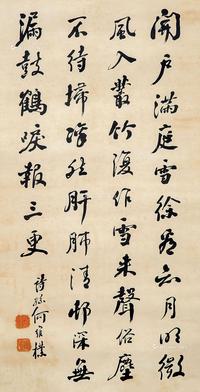 開戶滿庭雪徐看知月明微
風入叢竹復作雪來聲俗塵
不待掃凜然肝肺清邨深無
漏鼓鶴唳報三更
詩孫何維樸